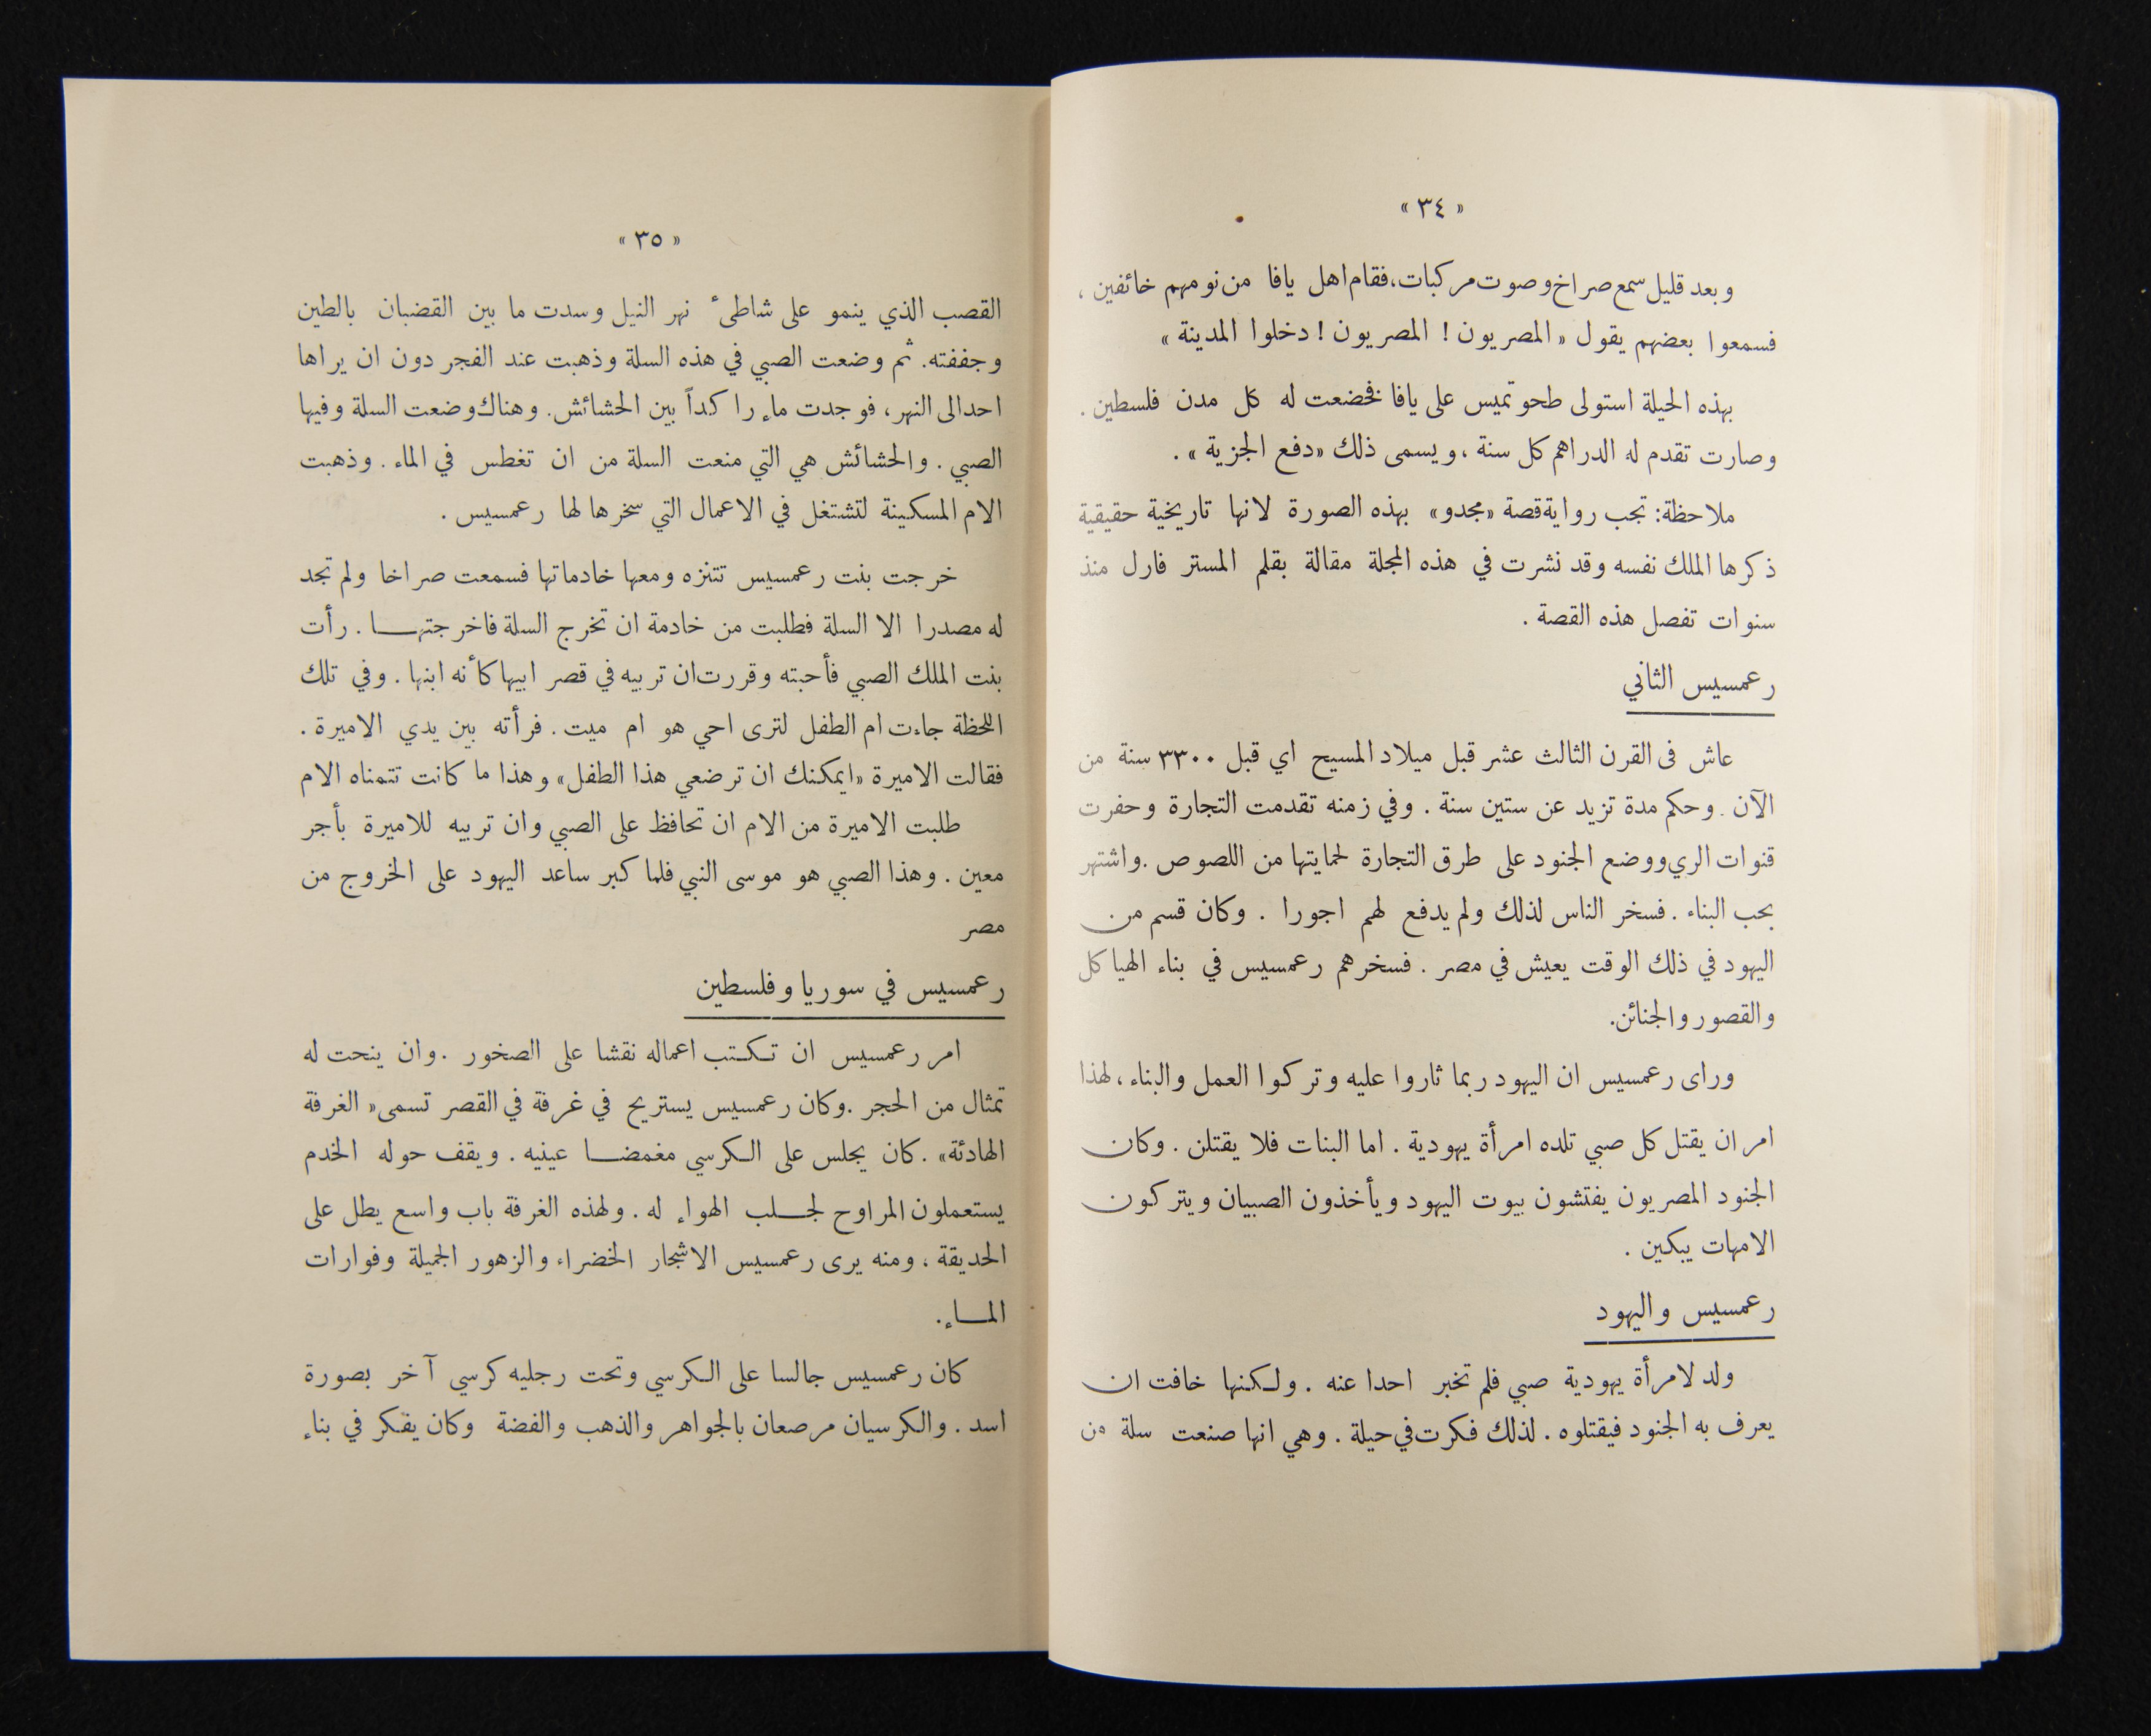 « ٣٤ »
وبعد قليل سمع صراخ وصوت مركبات، فقام اهل يافا من نومهم خائفين ،
فسمعوا بعضهم يقول « المصريون ! المصريون ! دخلوا المدينة »
بهذه الحيلة استولى طحوتميس على يافا فخضعت له كل مدن فلسطين .
وصارت تقدم له الدراهم كل سنة ، ويسمى ذلك « دفع الجزية » .
ملاحظة: تجب رواية قصة « مجدو » بهذه الصورة لانها تاريخية حقيقية
ذكرها الملك نفسه وقد نشرت في هذه المجلة مقالة بقلم المستر فارل منذ
سنوات تفصل هذه القصة .
رعمسيس الثاني
عاش فى القرن الثالث عشر قبل ميلاد المسيح اي قبل ٣٣٠٠ سنة من
الآن . وحكم مدة تزيد عن ستين سنة . وفي زمنه تقدمت التجارة وحفرت
قنوات الري ووضع الجنود على طرق التجارة لحمايتها من اللصوص . واشتهر
بحب البناء . فسخر الناس لذلك ولم يدفع لهم اجورا . وكان قسم من
اليهود في ذلك الوقت يعيش في مصر . فسخرهم رعمسيس في بناء الهياكل
والقصور والجنائن.
وراى رعمسيس ان اليهود ربما ثاروا عليه وتركوا العمل والبناء ، لهذا
امر ان يقتل كل صبي تلده امرأة يهودية . اما البنات فلا يقتلن . وكان
الجنود المصريون يفتشون بيوت اليهود ويأخذون الصبيان ويتركون
الامهات يبكين .
رعمسيس واليهود
ولد لامرأة يهودية صبي فلم تخبر احدا عنه . ولكنها خافت ان
يعرف به الجنود فيقتلوه . لذلك فكرت في حيلة . وهي انها صنعت سلة من
« ٣٥ »
القصب الذي ينمو على شاطىء نهر النيل وسدت ما بين القضبان بالطين
وجففته. ثم وضعت الصبي في هذه السلة وذهبت عند الفجر دون ان يراها
احد الى النهر ، فوجدت ماء راكداً بين الحشائش. وهناك وضعت السلة وفيها
الصبي . والحشائش هي التي منعت السلة من ان تغطس في الماء . وذهبت
الام المسكينة لتشتغل في الاعمال التي سخرها لها رعمسيس .
خرجت بنت رعمسيس تتنزه ومعها خادماتها فسمعت صراخا ولم تجد
له مصدرا الا السلة فطلبت من خادمة ان تخرج السلة فاخرجتها . رأت
بنت الملك الصبي فأحبته وقررت ان تربيه في قصر ابيها كأنه ابنها . وفي تلك
اللحظة جاءت ام الطفل لترى احي هو ام ميت . فرأته بين يدي الاميرة .
فقالت الاميرة « ايمكنك ان ترضعي هذا الطفل » وهذا ما كانت تتمناه الام
طلبت الاميرة من الام ان تحافظ على الصبي وان تربيه للاميرة بأجر
معين . وهذا الصبي هو موسى النبي فلما كبر ساعد اليهود على الخروج من
مصر
رعمسيس في سوريا وفلسطين
امر رعمسيس ان تكتب اعماله نقشا على الصخور . وان ينحت له
تمثال من الحجر . وكان رعمسيس يستريح في غرفة في القصر تسمى « الغرفة
الهادئة » . كان يجلس على الكرسي مغمضا عينيه . ويقف حوله الخدم
يستعملون المراوح لجلب الهواء له . ولهذه الغرفة باب واسع يطل على
الحديقة ، ومنه يرى رعمسيس الاشجار الخضراء والزهور الجميلة وفوارات
الماء .
كان رعمسيس جالسا على الكرسي وتحت رجليه كرسي آخر بصورة
اسد . والكرسيان مرصعان بالجواهر والذهب والفضة وكان يفكر في بناء